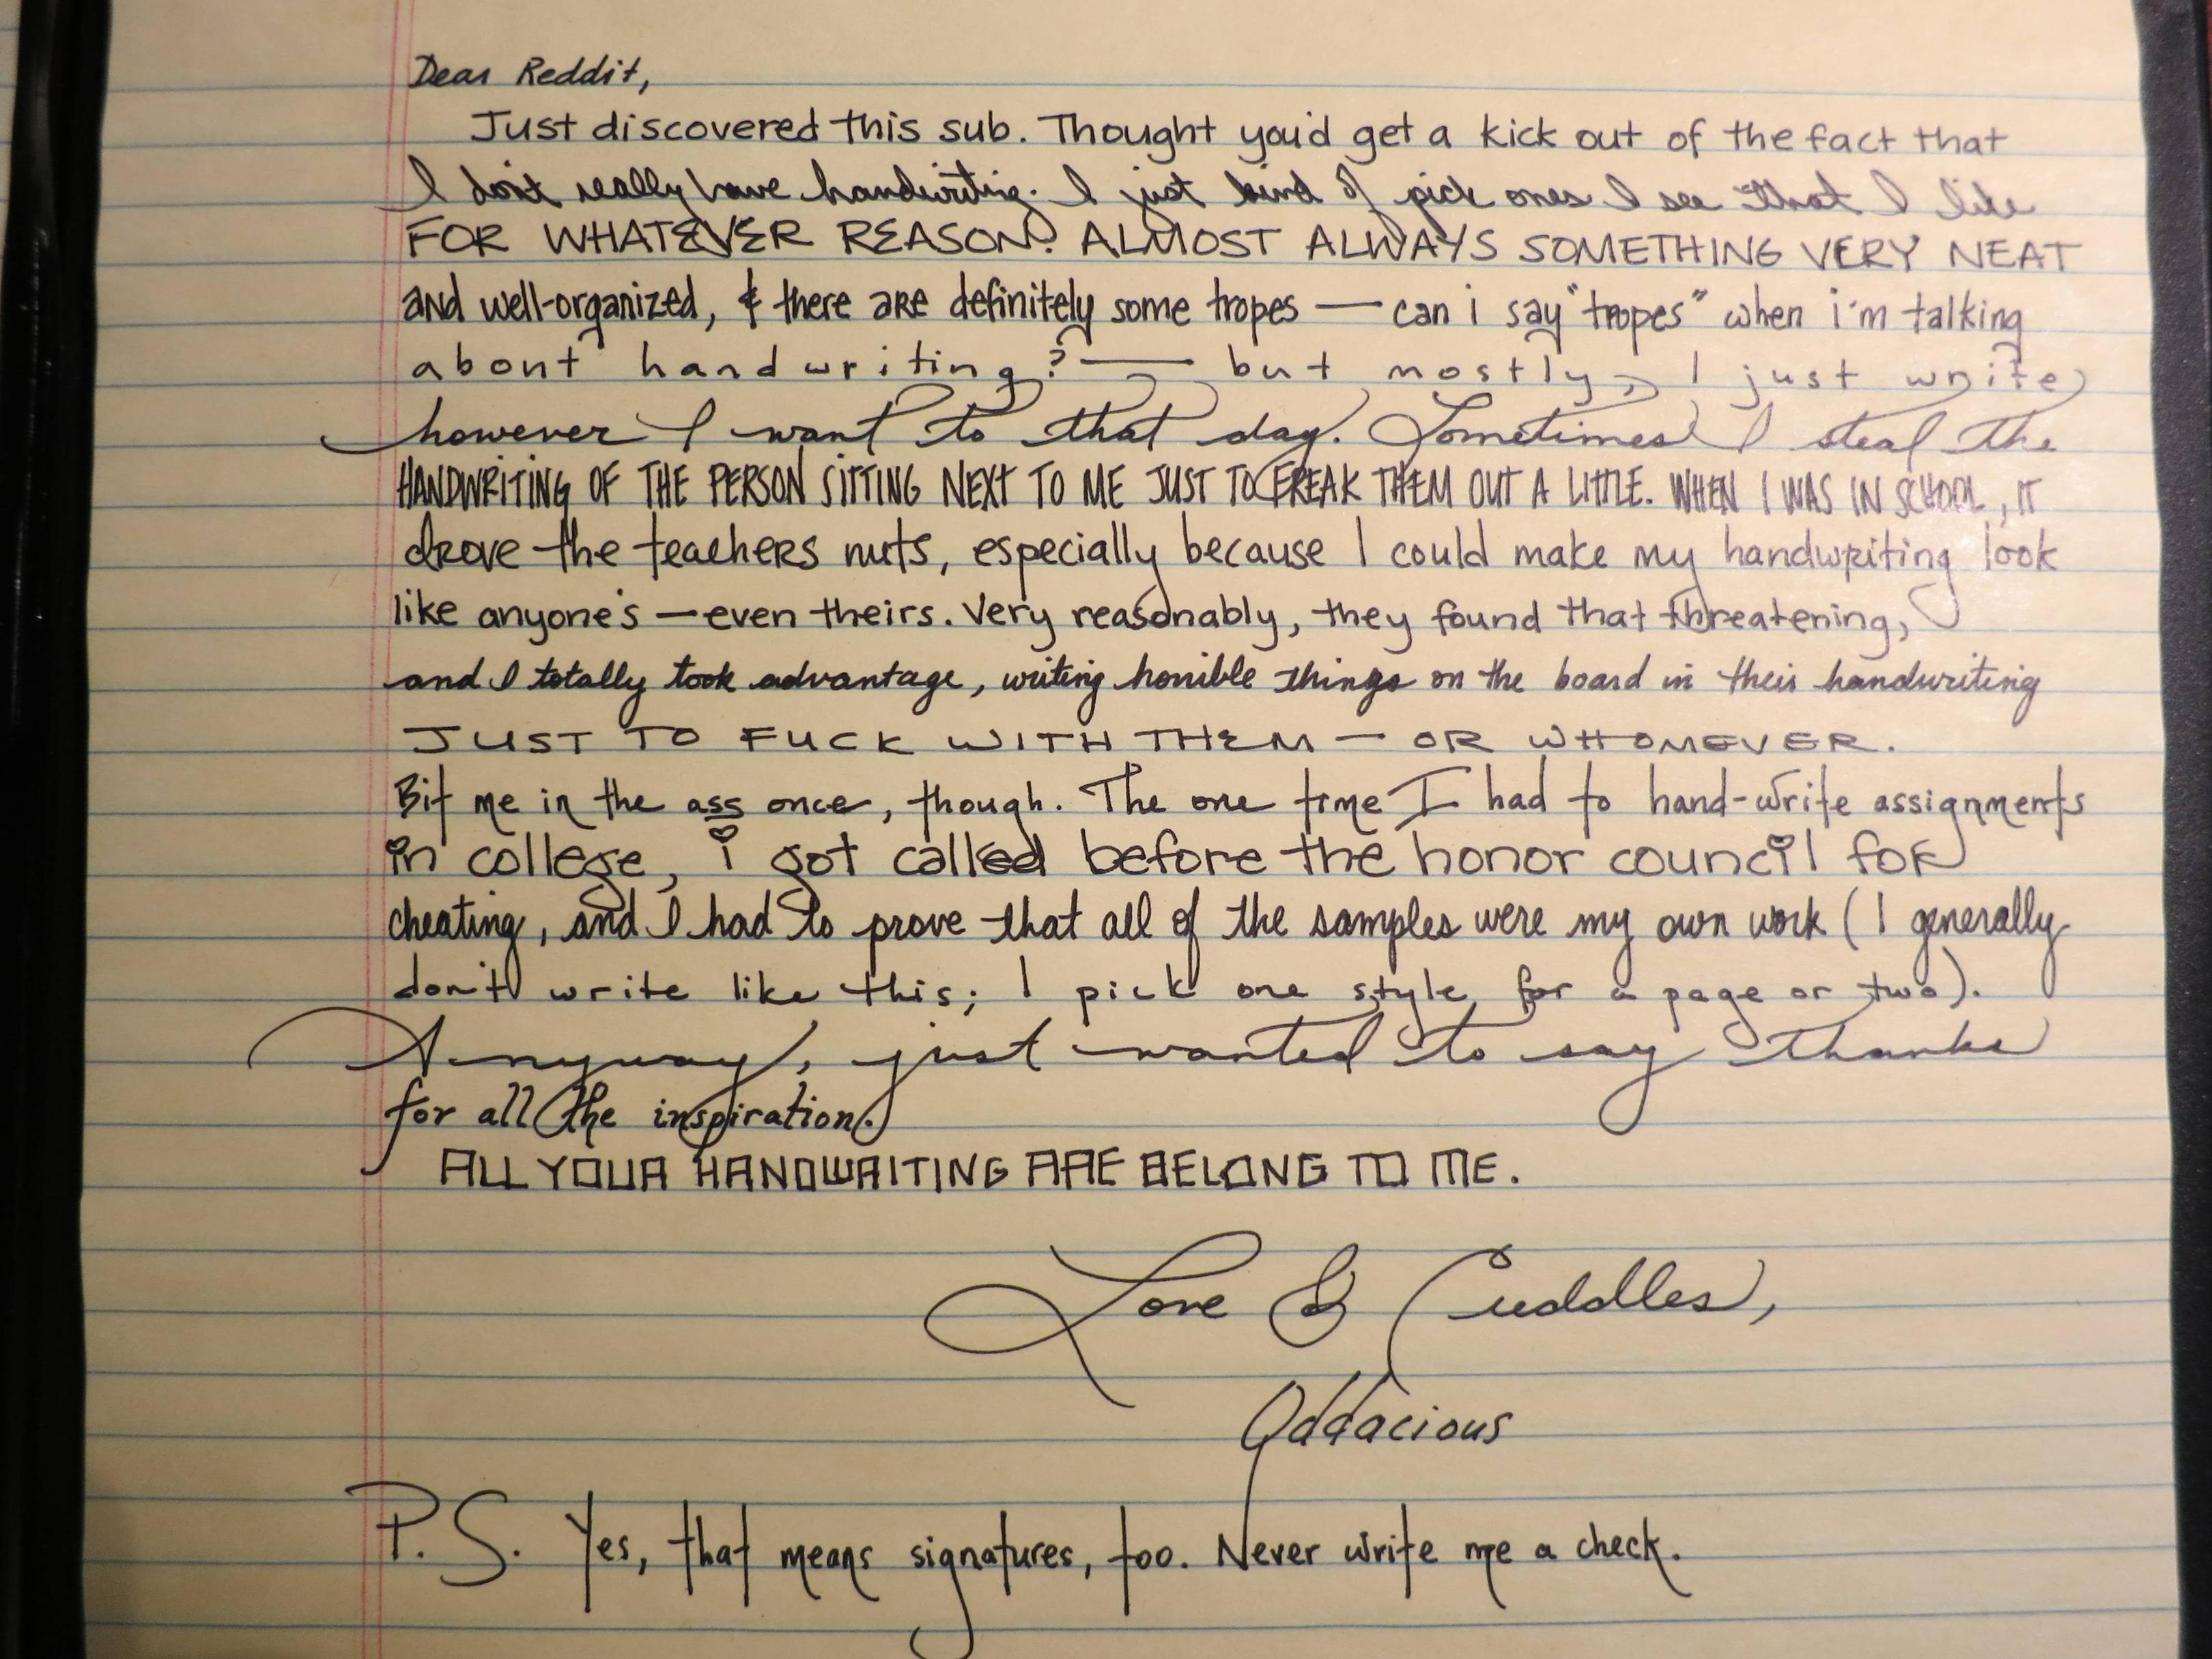 Dear Reddit,
Just discovered this sub. Thought you'd get a kick out of the fact that
I don't really have handwriting. I just kind of pick ones I see that I like
FOR WHATEVER REASON. ALMOST ALWAYS SOMETHING VERY NEAT
and well-organized, & there are definitely some tropes — can i say "tropes" when i'm talking
about handwriting? — but mostly, I just write
however I want to that day. Sometimes I steal the
HANDWRITING OF THE PERSON SITTING NEXT TO ME JUST TO FREAK THEM OUT A LITTLE. WHEN I WAS IN SCHOOL, IT
drove the teachers nuts, especially because I could make my handwriting look
like anyone's — even theirs. Very reasonably, they found that threatening,
and I totally took advantage, writing horrible things on the board in their handwriting
JUST TO FUCK WITH THEM — OR WHOMEVER.
Bit me in the ass once, though. The one time I had to hand-write assignments
in college, i got called before the honor council for
cheating, and I had to prove that all of the samples were my own work (I generally
don't write like this; I pick one style for a page or two).
Anyway, just wanted to say thanks
for all the inspiration.
ALL YOUR HANDWRITING ARE BELONG TO ME.
Love & Cuddles,
Oddacious
P.S. Yes, that means signatures, too. Never write me a check.